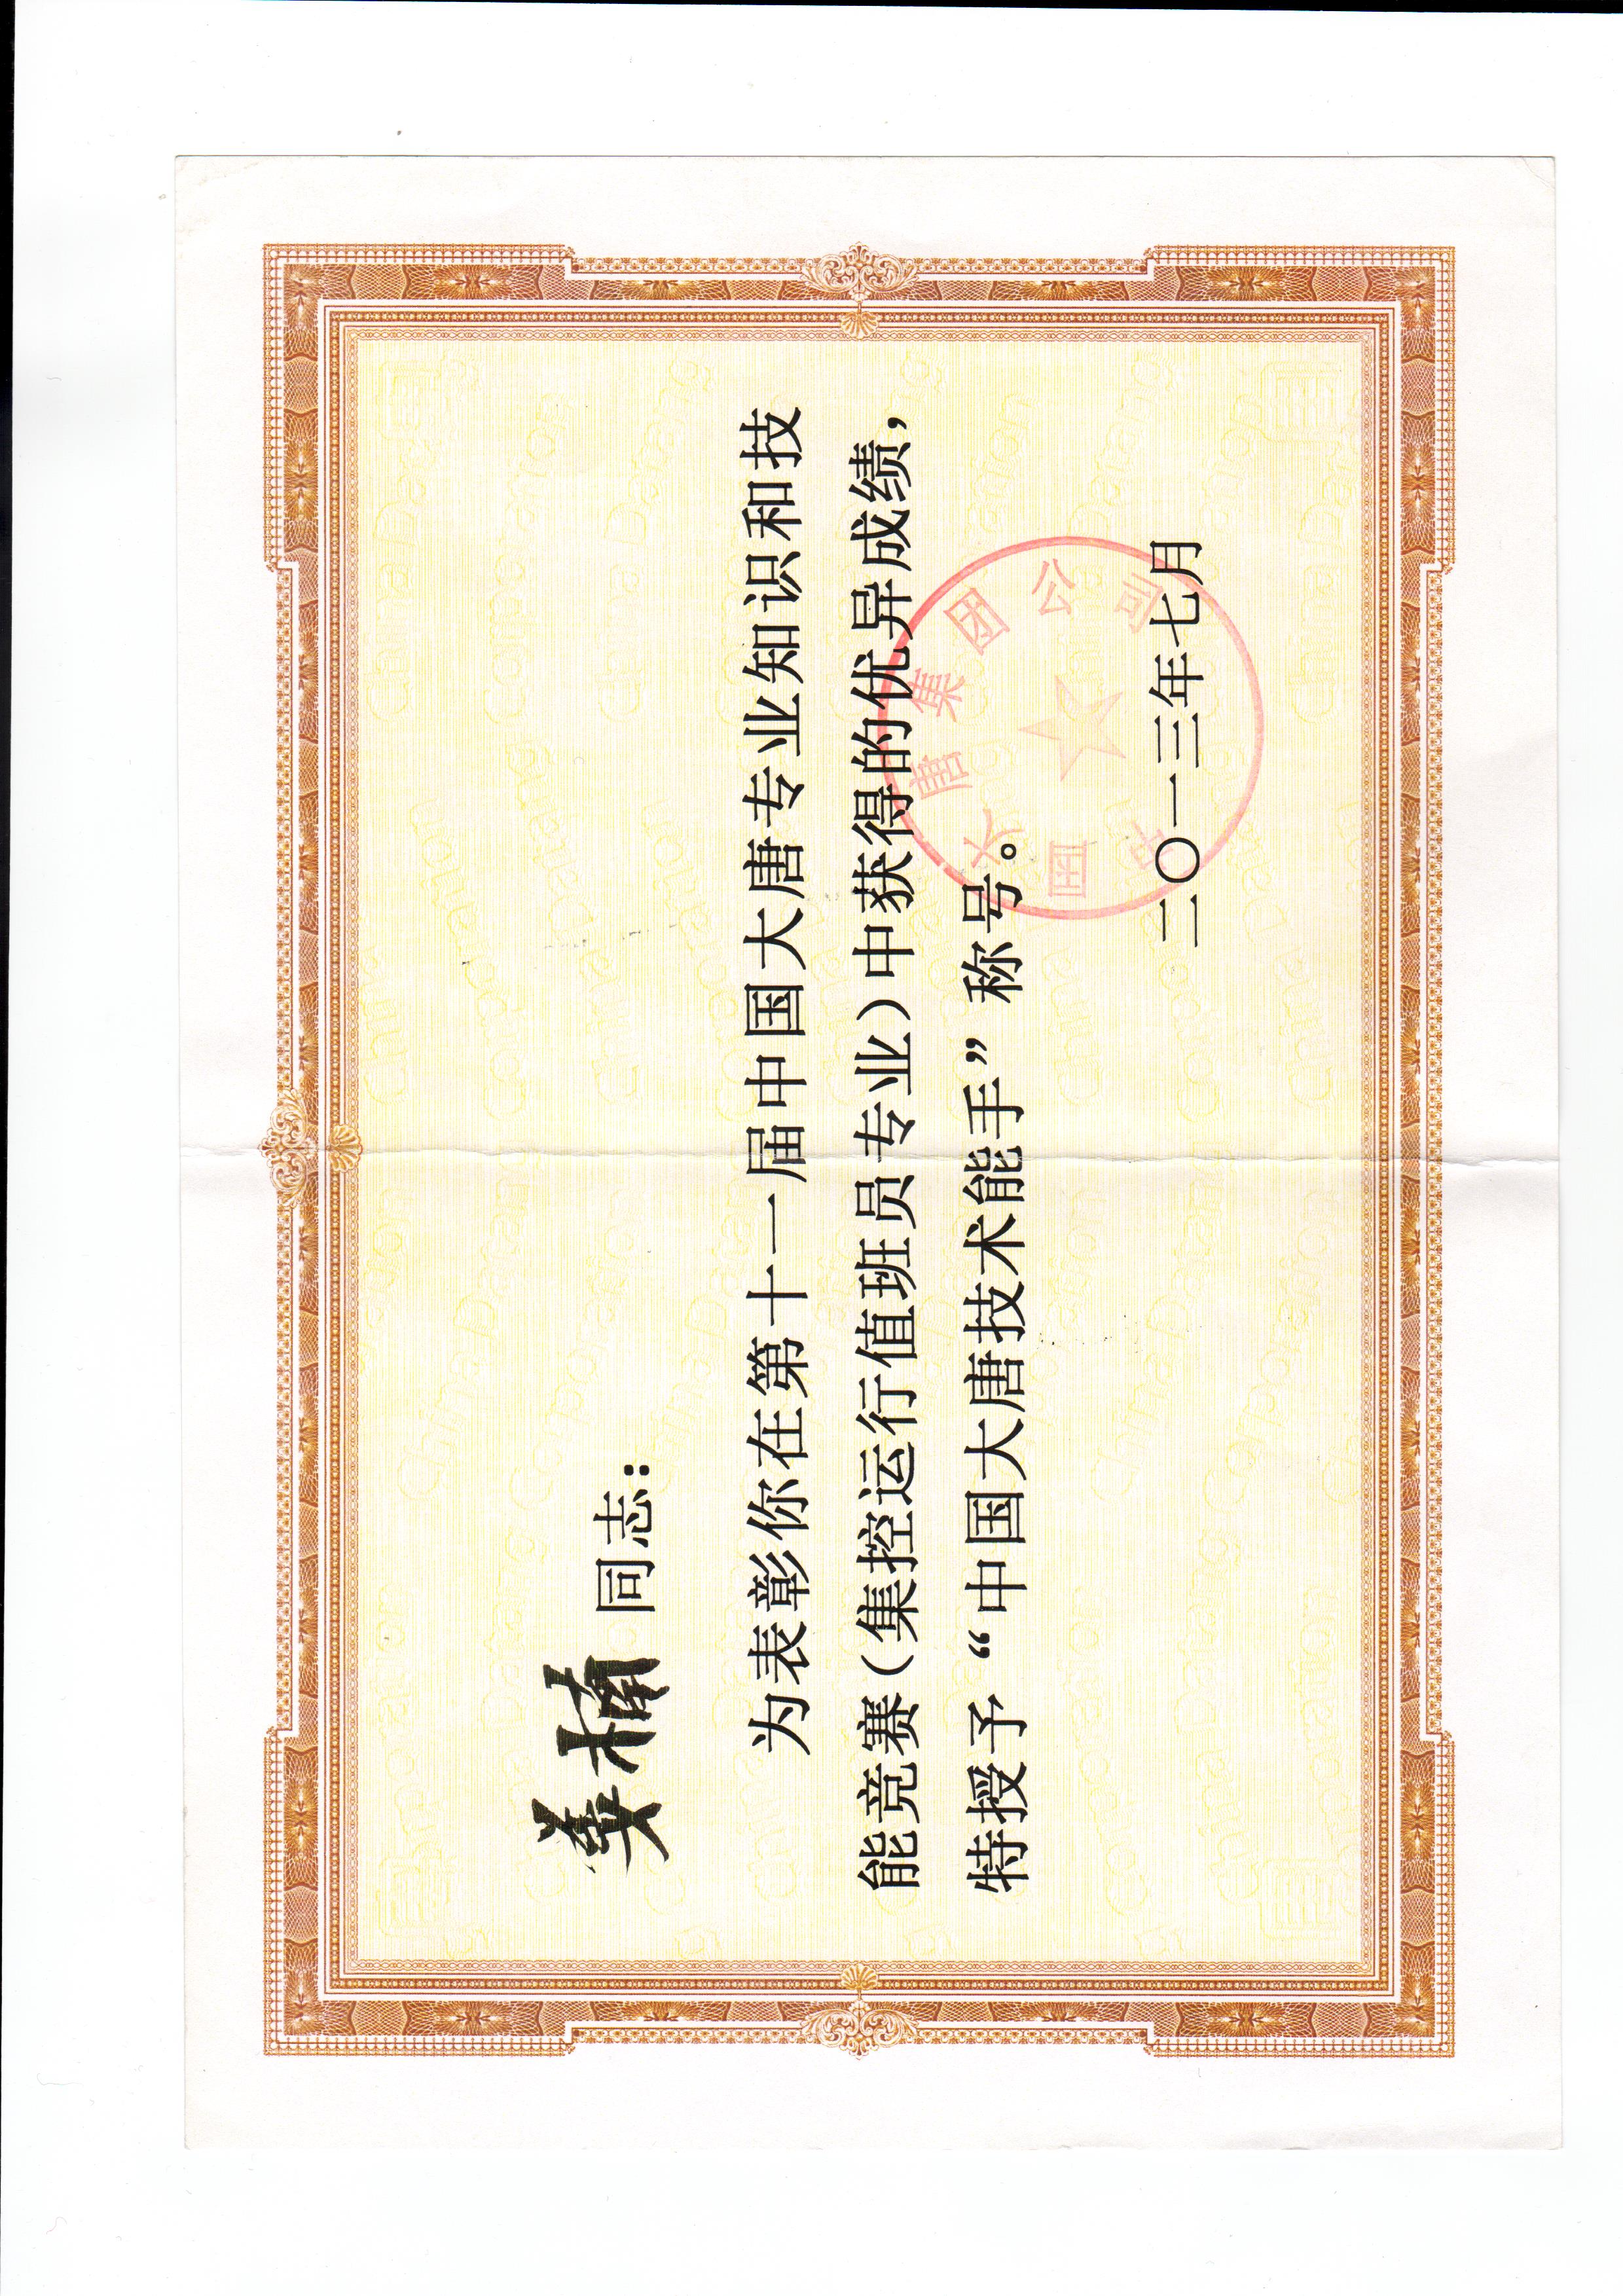 姜楠同志：
为表彰你在第十一届中国大唐专业知识和技
能竞赛（集控运行值班员专业）中获得的优异成绩，
特授予“中国大唐技术能手”称号。
中国大唐集团公司
二〇一三年七月